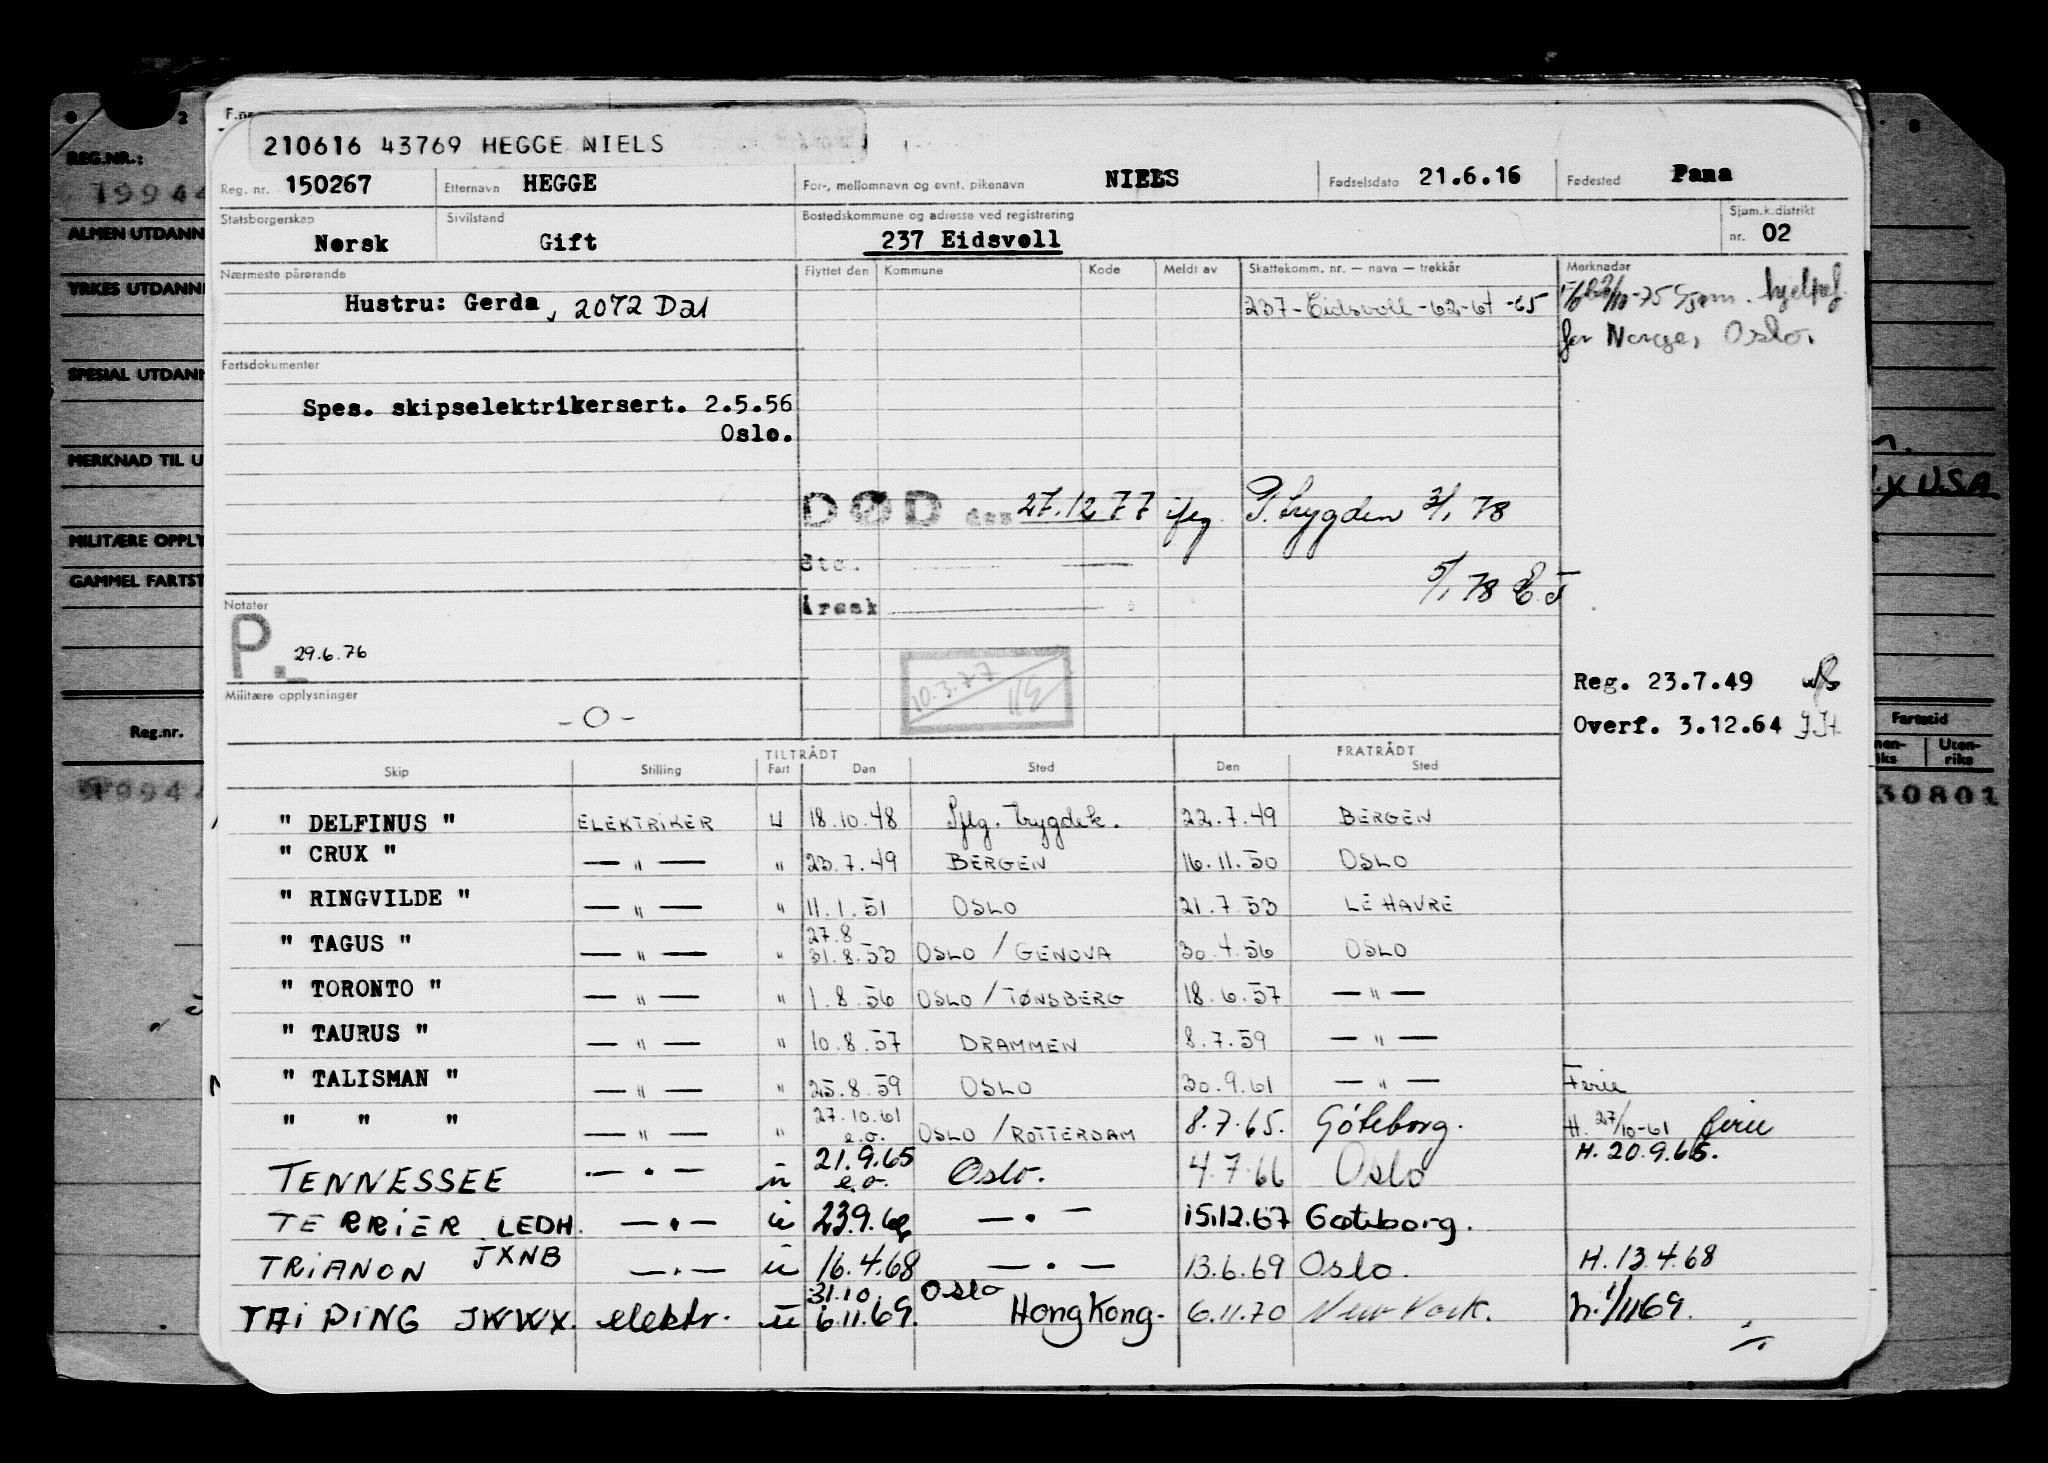 F.nr.
210616 43769 HEGGE NIELS
REG.NR.:
Reg. nr. 150267 Etternavn HEGGE For-, mellomnavn og evnt. pikenavn NIELS Fødselsdato 21.6.16 Fødested Fana
Statsborgerskap Norsk Sivilstand Gift Bostedskommune og adresse ved registrering 237 Eidsvoll Sjøm.k.distrikt nr. 02
ALMEN UTDANN
YRKES UTDANN
SPESIAL UTDANN
MERKNAD TIL U
MILITÆRE OPPLY
GAMMEL FARTST
Reg.nr.
Nærmeste pårørende Flyttet den Kommune Kode Meldt av Skattekomm. nr. — navn — trekkår Merknader
Hustru: Gerda, 2072 Dal
237-Eidsvoll-62-64-65
for Norge, Oslo.
Fartsdokumenter
Spes. skipselektrikersert. 2.5.56
Oslo.
DØD den 27.12.77 iflg. P.trygden 3/1 78
Sto.
5/1 78 E.J
Årsak
Notater
P. 29.6.76
10.3.77
Militære opplysninger
-O-
Reg. 23.7.49
Overf. 3.12.64
USA
Fartstid
Uten-
riks
30801
TILTRÅDT FRATRÅDT
Skip Stilling Fart Den Sted Den Sted
" DELFINUS " ELEKTRIKER U 18.10.48 Iflg. trygdek. 22.7.49 BERGEN
" CRUX " — " — " 23.7.49 BERGEN 16.11.50 OSLO
" RINGVILDE " — " — " 11.1.51 OSLO 21.7.53 LE HAVRE
" TAGUS " — " — " 27.8 31.8.53 OSLO / GENOVA 30.4.56 OSLO
" TORONTO " — " — " 1.8.56 OSLO / TØNSBERG 18.6.57 — " —
" TAURUS " — " — " 10.8.57 DRAMMEN 8.7.59 — " —
" TALISMAN " — " — " 25.8.59 OSLO 30.9.61 — " — Ferie
" " " — " — " 27.10.61 e.o. OSLO / ROTTERDAM 8.7.65. Göteborg. H. 27/10-61 ferie
H. 20.9.65.
TENNESSEE — " — u 21.9.65 e.o. Oslo. 4.7.66 Oslo
TERRIER LEDH. — " — u 23.9.66 — " — 15.12.67 Gøteborg.
TRIANON JXNB — " — u 16.4.68 — " — 13.6.69 Oslo. H. 13.4.68
TAI PING JWWX. elektr. u 31.10 6.11.69. Oslo HongKong. 6.11.70 New York. h. 1/11 69.